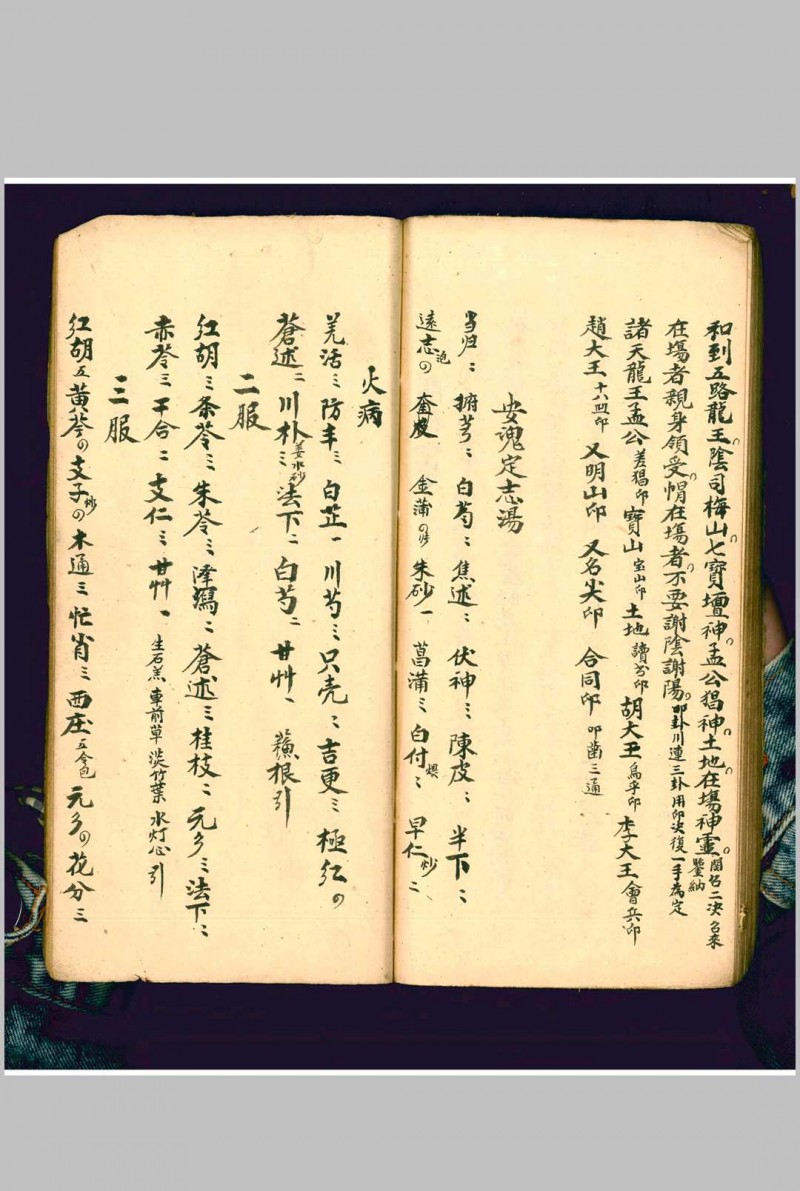 和到五路龍王陰司梅山七寶壇神孟公猖神土地在塲神靈 閤召二决召來鑒納
在塲者親身領受帽在塲者不要謝陰謝陽 叩卦川連三卦用印决復一手為定
諸天龍王孟公 差猖印 寶山 宝山印 土地 讀书印 胡大王 烏乎印 李大王 會兵印
趙大王 十八凹印 又明山印 又名尖印 合同印 叩齒三通
安魂定志湯
当归〻 撫芎〻 白芍〻 焦述〻 伏神三 陳皮〻 半下〻
遠志泡の 奎皮 金蒲のか 朱砂一 菖蒲三 白付煨〻 早仁炒二
火病
羌活三 防丰三 白芷一 川芎三 只壳〻 吉更三 極红の
蒼述二 川朴姜水砂三 法下二 白芍二 甘艸一 蘓根引
二服
红胡三 条苓三 朱苓三 泽瀉二 蒼述三 桂枝二 元参三 法下二
赤苓三 干合二 支仁三 甘艸一 生石羔 車前草 淡竹葉 水灯心引
三服
红胡五 黄苓の 支子炒の 木通三 忙肖三 西庄五令包 元参の 花分三